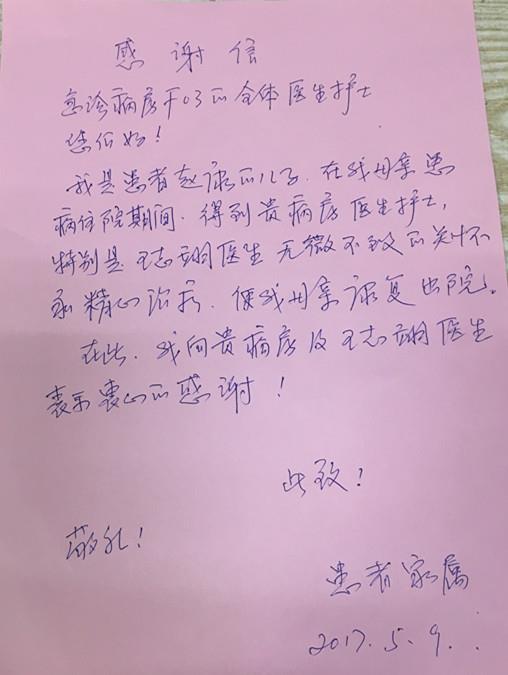 感谢信
急诊病房F03的全体医生护士
您们好!
我是患者赵康的儿子.在我母亲患
病住院期间.得到贵病房医生护士,
特别是王志翔医生无微不致的关怀
和精心治疗.使我母亲康复出院。
在此.我向贵病房及王志翔医生
表示衷心的感谢!
此致!
敬礼!
患者家属
2017.5.9..